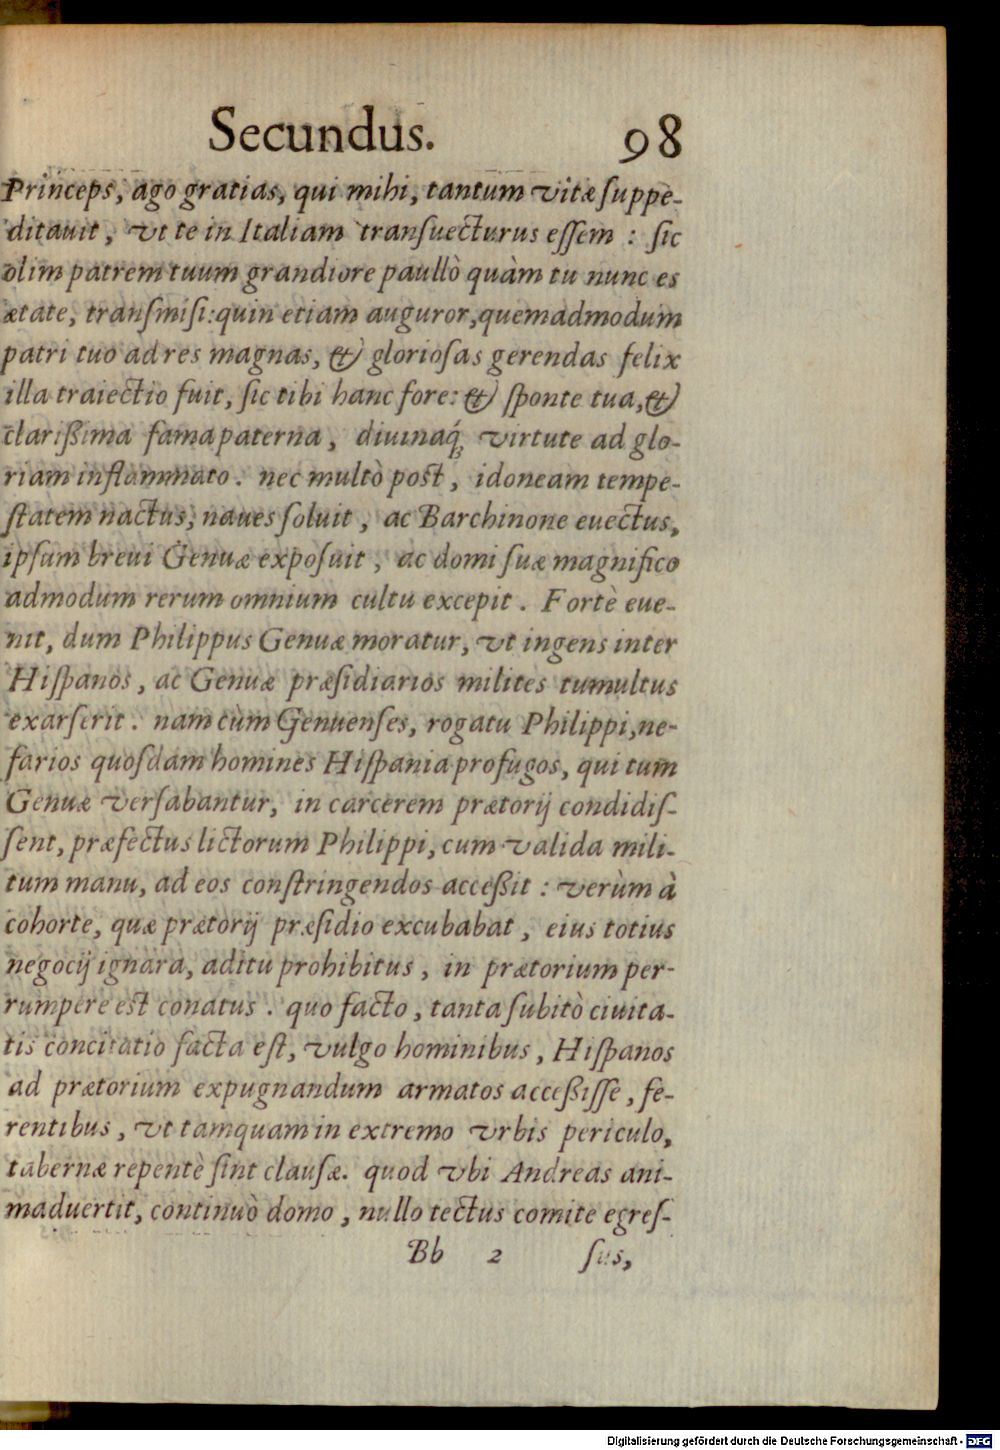 Secundus. 98
Princeps, ago gratias, qui mihi, tantum vitæ suppe-
ditauit, vt te in Italiam transuecturus essem : sic
olim patrem tuum grandiore paullò quàm tu nunc es
ætate, transmisi: quin etiam auguror, quemadmodum
patri tuo ad res magnas, & gloriosas gerendas felix
illa traiectio fuit, sic tibi hanc fore: & sponte tua, &
clarißima fama paterna, diuinaq́; virtute ad glo-
riam inflammato. nec multò post, idoneam tempe-
statem nactus, naues soluit, ac Barchinone euectus,
ipsum breui Genuæ exposuit, ac domi suæ magnifico
admodum rerum omnium cultu excepit. Fortè eue-
nit, dum Philippus Genuæ moratur, vt ingens inter
Hispanos, ac Genuæ præsidiarios milites tumultus
exarserit. nam cùm Genuenses, rogatu Philippi, ne-
farios quosdam homines Hispania profugos, qui tum
Genuæ versabantur, in carcerem prætorij condidis-
sent, præfectus lictorum Philippi, cum valida mili-
tum manu, ad eos constringendos acceßit : verùm à
cohorte, quæ prætorij præsidio excubabat, eius totius
negocij ignara, aditu prohibitus, in prætorium per-
rumpere est conatus. quo facto, tanta subitò ciuita-
tis concitatio facta est, vulgo hominibus, Hispanos
ad prætorium expugnandum armatos acceßisse, fe-
rentibus, vt tamquam in extremo vrbis periculo,
tabernæ repentè sint clausæ. quod vbi Andreas ani-
maduertit, continuò domo, nullo tectus comite egres-
Bb 2 sus,
Digitalisierung gefördert durch die Deutsche Forschungsgemeinschaft - DFG